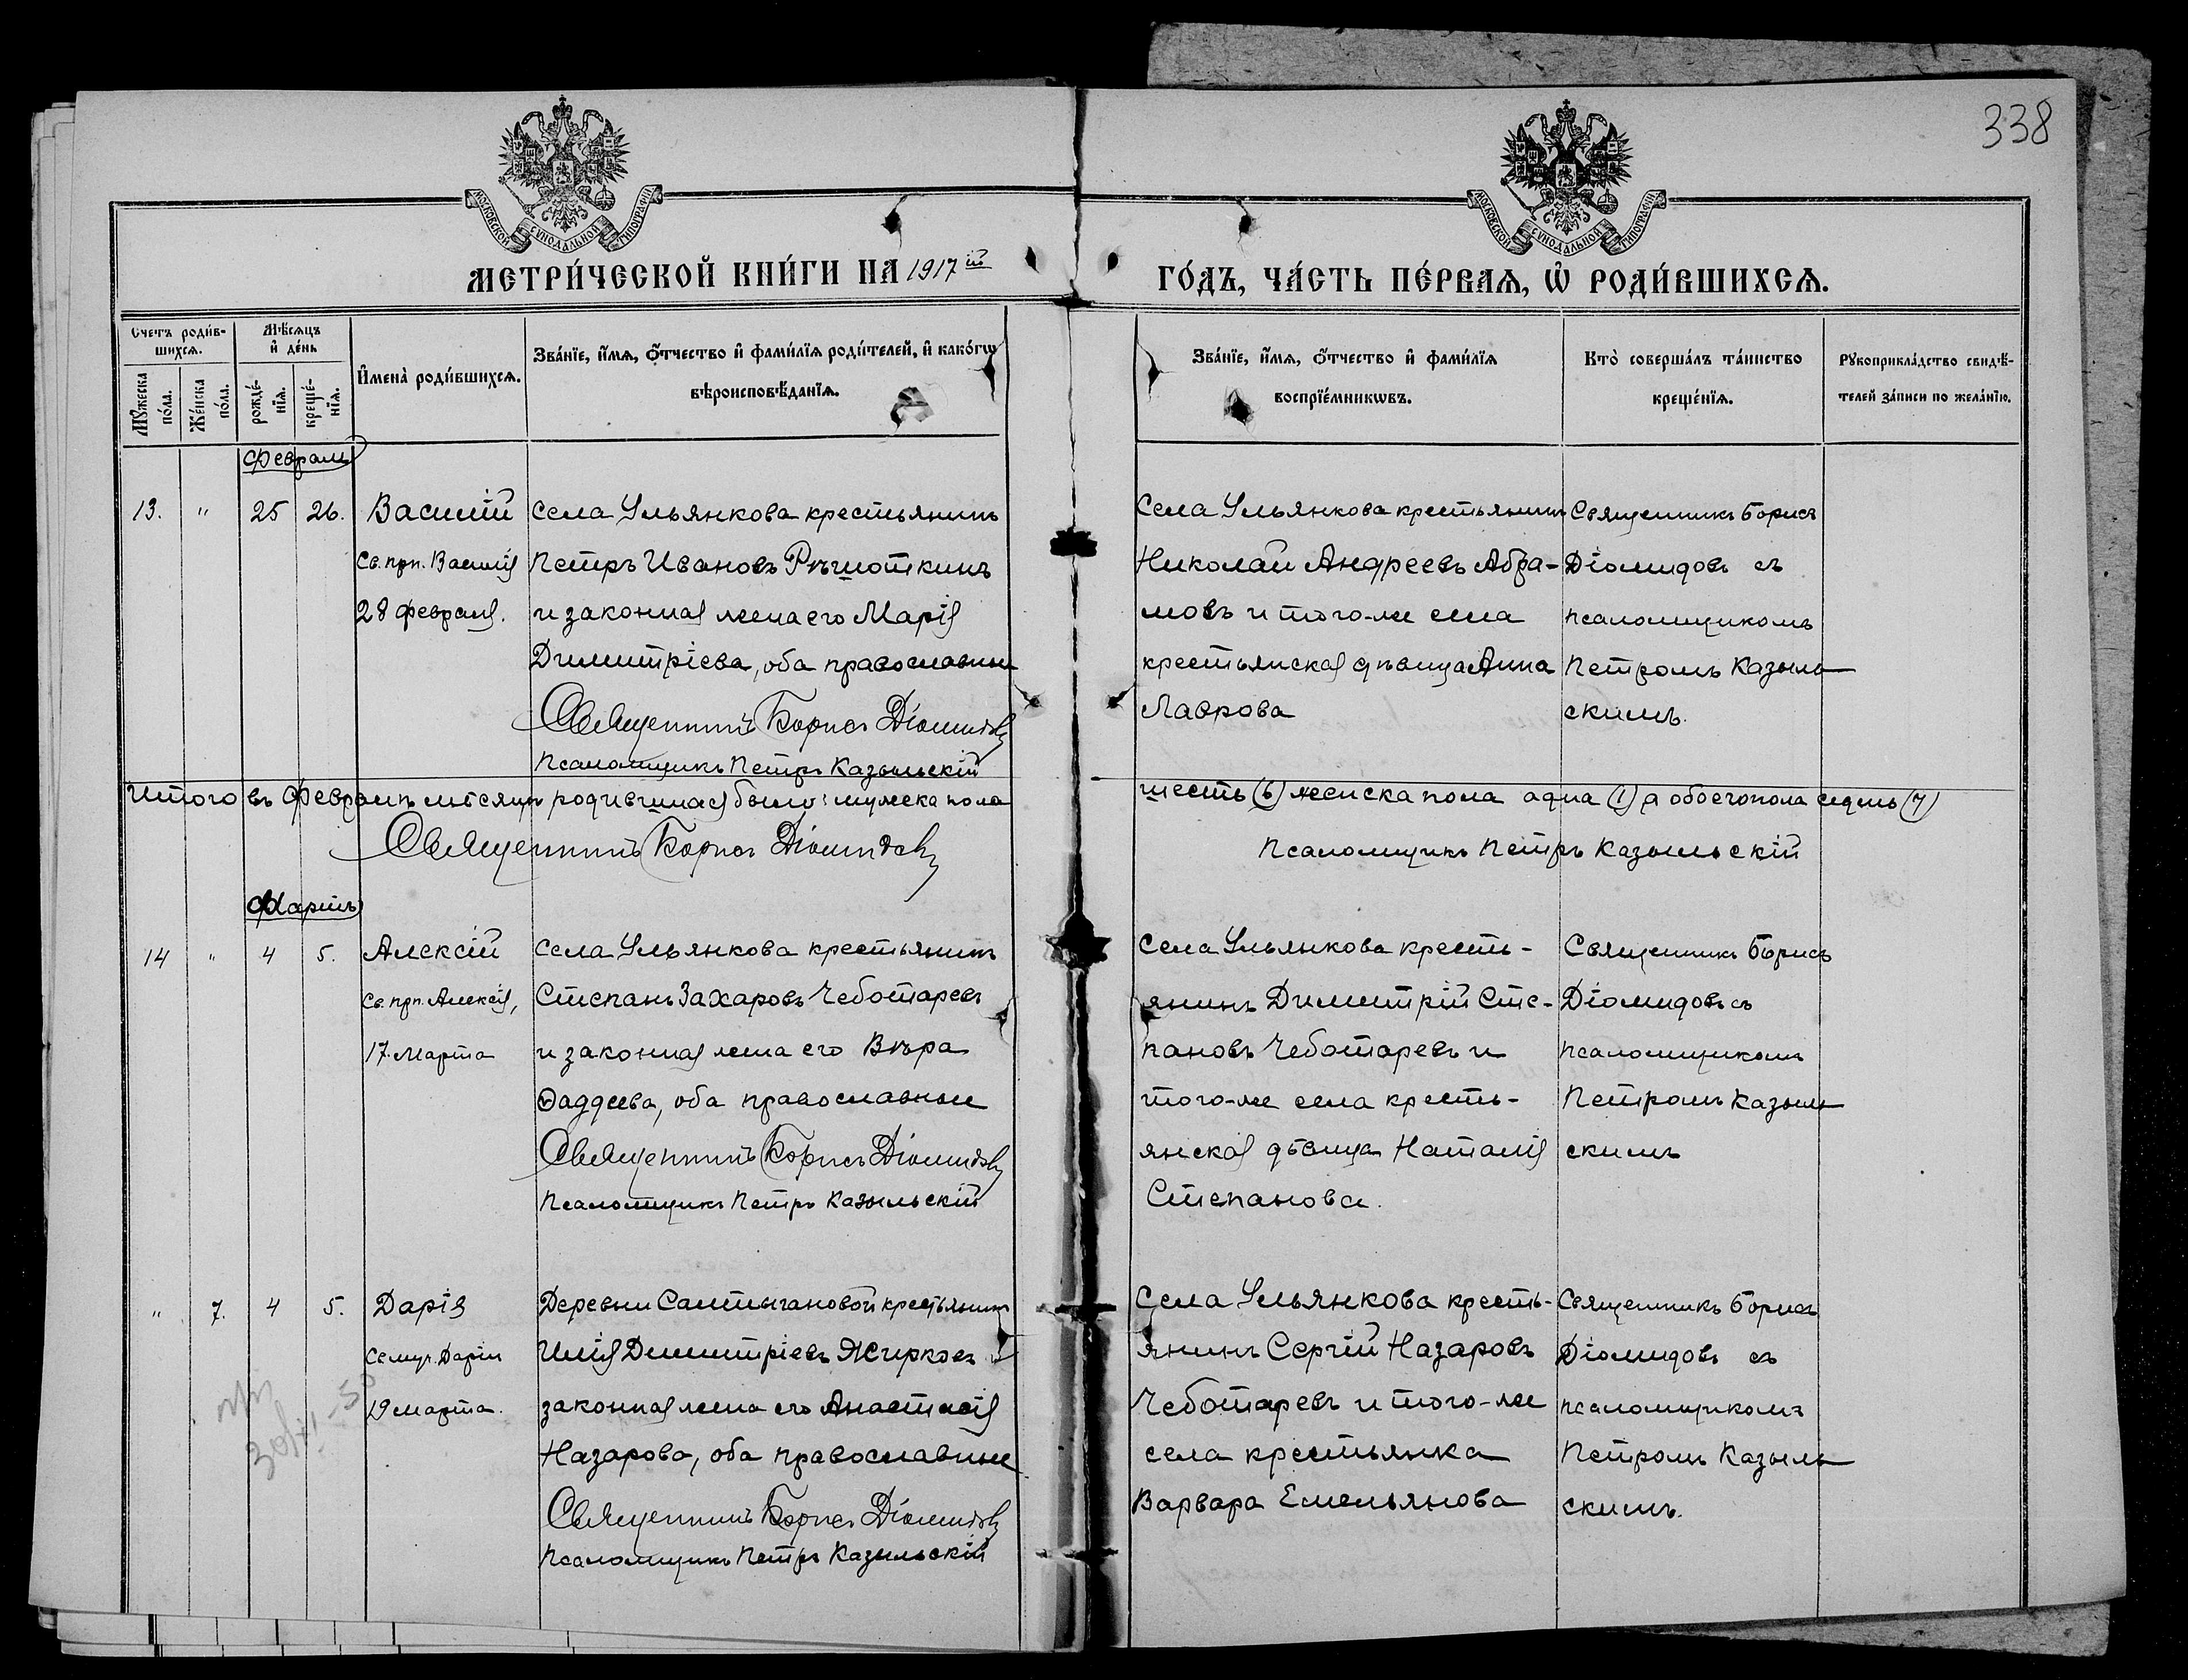 338
МОСКОВСКОЙ СѴНОДАЛЬНОЙ ТИПОГРАФІИ
МОСКОВСКОЙ СѴНОДАЛЬНОЙ ТИПОГРАФІИ
МЕТРИ́ЧЕСКОЙ КНИ́ГИ НА 1917 й
ГО́ДЪ, ЧА́СТЬ ПЕ́РВАѦ, Ѡ҆ РОДИ́ВШИХСѦ.
Счетъ роди́в-
шихсѧ.
Мꙋжеска
по́ла.
Же́нска
по́ла.
Мѣ́сѧцъ
и҆ де́нь
рожде́-
нїѧ.
креще́-
нїѧ.
И҆мена̀ роди́вшихсѧ.
Зва́нїе, и҆́мѧ, ѻ҆́тчество и҆ фами́лїѧ роди́телей, и҆ како́гѡ
вѣроисповѣ́данїѧ.
Зва́нїе, и҆́мѧ, ѻ҆́тчество и҆ фами́лїѧ
воспрїе́мникѡвъ.
Кто̀ соверша́лъ та́инство
креще́нїѧ.
Рꙋкоприкла́дство свидѣ́-
телей за́писи по жела́нїю.
Февраль
13. " 25 26. Василій
Св. прп. Василія
28 февраля.
Села Ульянкова крестьянинъ
Петръ Ивановъ Рѣшоткинъ
и законная жена его Марія
Димитріева, оба православные
Священникъ Борисъ Діомидовъ
Псаломщикъ Петръ Казыльскій
Села Ульянкова крестьянинъ
Николай Андреевъ Абра-
мовъ и того-же села
крестьянская дѣвица Анна
Лаврова
Священникъ Борисъ
Діомидовъ съ
псаломщикомъ
Петромъ Казыль
скимъ.
Итого въ Февралѣ мѣсяцѣ родившихся было: мужска пола
шесть (6) женска пола одна (1) а обоего пола седмь (7)
Священникъ Борисъ Діомидовъ
Псаломщикъ Петръ Казыльскій
Мартъ
14 " 4 5. Алексій
Св. прп. Алексія,
17 Марта
Села Ульянкова крестьянинъ
Степанъ Захаровъ Чеботаревъ
и законная жена его Вѣра
Ѳаддеева, оба православные
Священникъ Борисъ Діомидовъ
Псаломщикъ Петръ Казыльскій
Села Ульянкова кресть-
янинъ Димитрій Сте-
пановъ Чеботаревъ и
того-же села кресть-
янская дѣвица Наталія
Степанова.
Священникъ Борисъ
Діомидовъ съ
псаломщикомъ
Петромъ Казыль
скимъ
" 7. 4 5. Дарія
Св. муч. Даріи
19 марта.
Деревни Салтыгановой крестьянинъ
Илія Димитріевъ Жирковъ и
законная жена его Анастасія
Назарова, оба православные
Священникъ Борисъ Діомидовъ
Псаломщикъ Петръ Казыльскій
Села Ульянкова кресть-
янинъ Сергій Назаровъ
Чеботаревъ и того-же
села крестьянка
Варвара Емельянова
Священникъ Борисъ
Діомидовъ съ
псаломщикомъ
Петромъ Казыль
скимъ.
30/XI-50